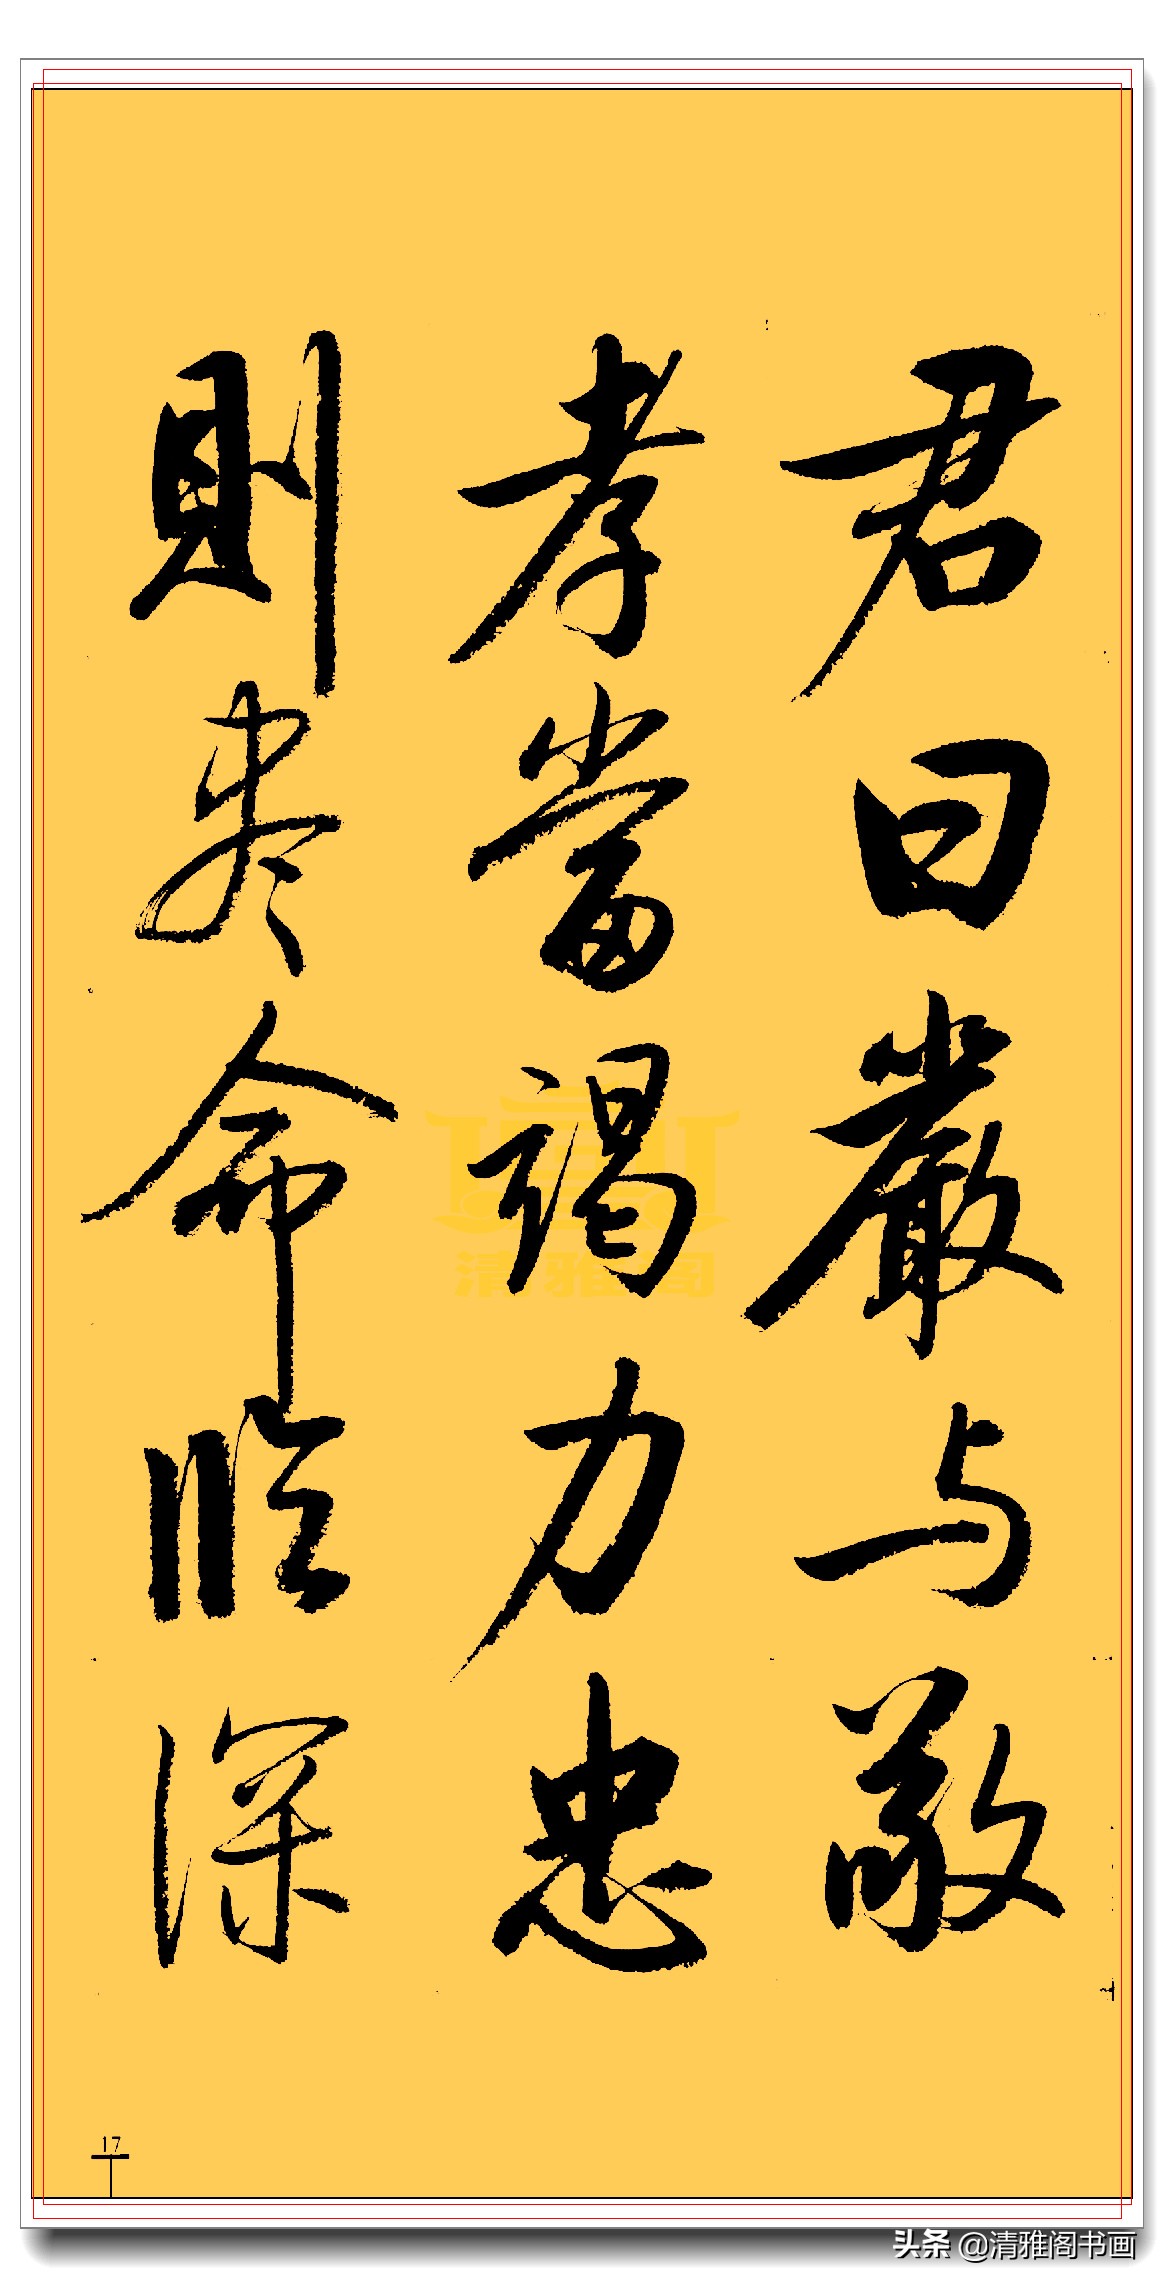 君曰嚴与敬
孝當竭力忠
則尽命临深
清雅阁
17
头条 @清雅阁书画